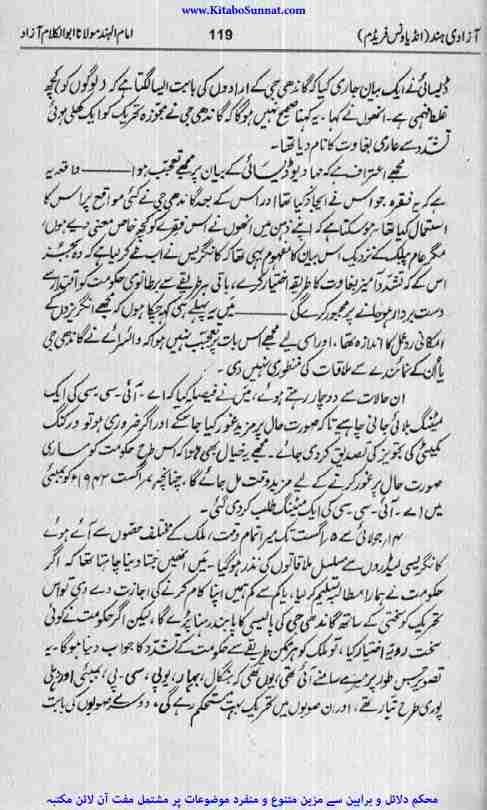 www.KitaboSunnat.com
آزادی ہند (انڈیا ونس فریڈم) 119 امام الہند مولانا ابوالکلام آزاد
ڈیسائی نے ایک بیان جاری کیا کہ گاندھی جی کے ارادوں کی بابت ایسا لگتا ہے کہ لوگوں کو کچھ
غلط فہمی ہے۔ انھوں نے کہا۔ یہ کہنا صحیح نہیں ہوگا کہ گاندھی جی نے مجوزہ تحریک کو ایک کھلی ہوئی
تشدد سے عاری بغاوت کا نام دیا تھا۔
مجھے اعتراف ہے کہ مہا دیو ڈیسائی کے بیان پر مجھے تعجب ہوا ——— واقعہ یہ
ہے کہ یہ فقرہ جواہر نے ایجاد کیا تھا اور اس کے بعد گاندھی جی نے کئی مواقع پر اس کا
استعمال کیا تھا ہو سکتا ہے کہ اپنے ذہن میں انھوں نے اس فقرے کو کچھ خاص معنی دیے ہوں،
مگر عام پبلک کے نزدیک اس بیان کا مفہوم یہی تھا کہ کانگریس نے اب طے کر لیا ہے کہ وہ بجز
اس کے کہ تشدد آمیز بغاوت کا طریقہ اختیار کرے، باقی ہر طریقے سے برطانوی حکومت کو اقتدار سے
دست بردار ہو جانے پر مجبور کرے گی ——— میں یہ پہلے ہی کہہ چکا ہوں کہ مجھے انگریزوں کے
امکانی ردعمل کا اندازہ تھا، اور اسی لیے مجھے اس بات پر تعجب نہیں ہوا کہ وائسرائے نے گاندھی جی
یا ان کے نمائندے سے ملاقات کی منظوری نہیں دی۔
ان حالات سے دوچار رہتے ہوئے، میں نے فیصلہ کیا کہ اے۔ آئی۔ سی۔ سی کی ایک
میٹنگ بلائی جانی چاہیے تاکہ صورت حال پر مزید غور کیا جا سکے اور اگر ضروری ہو تو ورکنگ
کمیٹی کی تجویز کی تصدیق کر دی جائے۔ مجھے یہ خیال بھی تھا کہ اس طرح حکومت کو ساری
صورت حال پر غور کرنے کے لیے مزید وقت مل جائے گا، چنانچہ اگست ۱۹۴۲ء کو بمبئی
میں اے۔ آئی۔ سی۔ سی کی ایک میٹنگ طلب کر دی گئی۔
۱۴ جولائی سے ۵ اگست تک میرا تمام وقت، ملک کے مختلف حصوں سے آئے ہوئے
کانگریسی لیڈروں سے مسلسل ملاقاتوں کی نذر ہو گیا۔ میں انھیں جتا دینا چاہتا تھا کہ اگر
حکومت نے ہمارا مطالبہ تسلیم کر لیا، یا کم سے کم ہمیں اپنا کام کرنے کی اجازت دے دی تو اس
تحریک کو سختی کے ساتھ گاندھی جی کی پالیسی کا پابند رہنا پڑے گا، لیکن اگر حکومت نے کوئی
سخت رویہ اختیار کیا، تو ملک کو ہر ممکن طریقے سے حکومت کے تشدد کا جواب دینا ہوگا۔ یہ
تصویر جس طور پر میرے سامنے آئی تھی، یوں تھی کہ بنگال، بہار، یوپی، سی۔پی، بمبئی اور دہلی
پوری طرح تیار تھے، اور ان صوبوں میں تحریک بہت مستحکم رہے گی۔ دوسرے صوبوں کی بابت
محکم دلائل و براہین سے مزین متنوع و منفرد موضوعات پر مشتمل مفت آن لائن مکتبہ